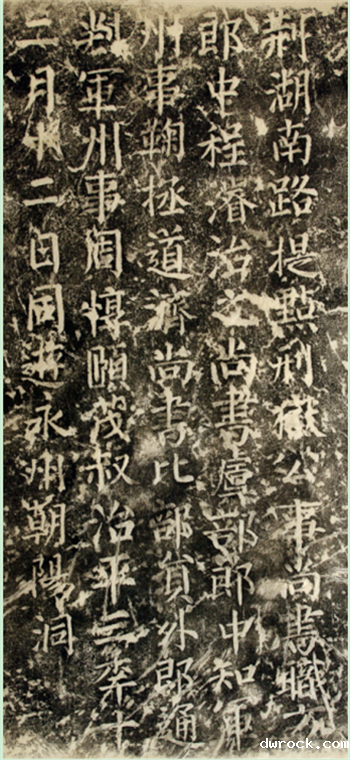 荆湖南路提點刑獄公事尚書職方
郎中程濬治之尚書虞部郎中知軍
州事鞠拯道濟尚書比部員外郎通
判軍州事周惇頤茂叔治平三年十
二月十二日同遊永州朝陽洞
dwrock.com